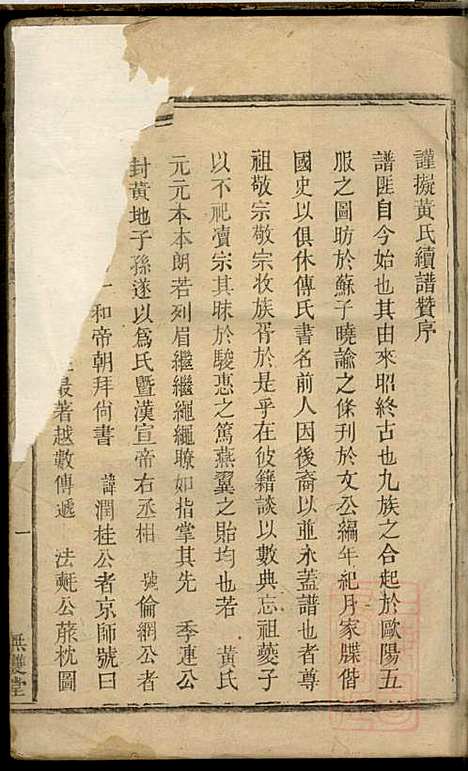 謹擬黃氏續譜贊序
譜匪自今始也其由來昭終古也九族之合起於歐陽五
服之圖昉於蘇子曉諭之條刊於文公編年紀月家牒偕
國史以俱休傳氏書名前人因後裔以並永蓋譜也者尊
祖敬宗敬宗收族胥於是乎在彼籍談以數典忘祖夔子
以不祀賣宗其昧於駿惠之篤燕翼之貽均也若 黃氏
元元本本朗若列眉繼繼繩繩瞭如指掌其先 季連公
封黃地子孫遂以爲氏暨漢宣帝右丞相 號倫綱公者
和帝朝拜尚書 諱潤桂公者京師號曰
最著越數傳遞 法𨠑公蔴枕圖
一
無雙堂